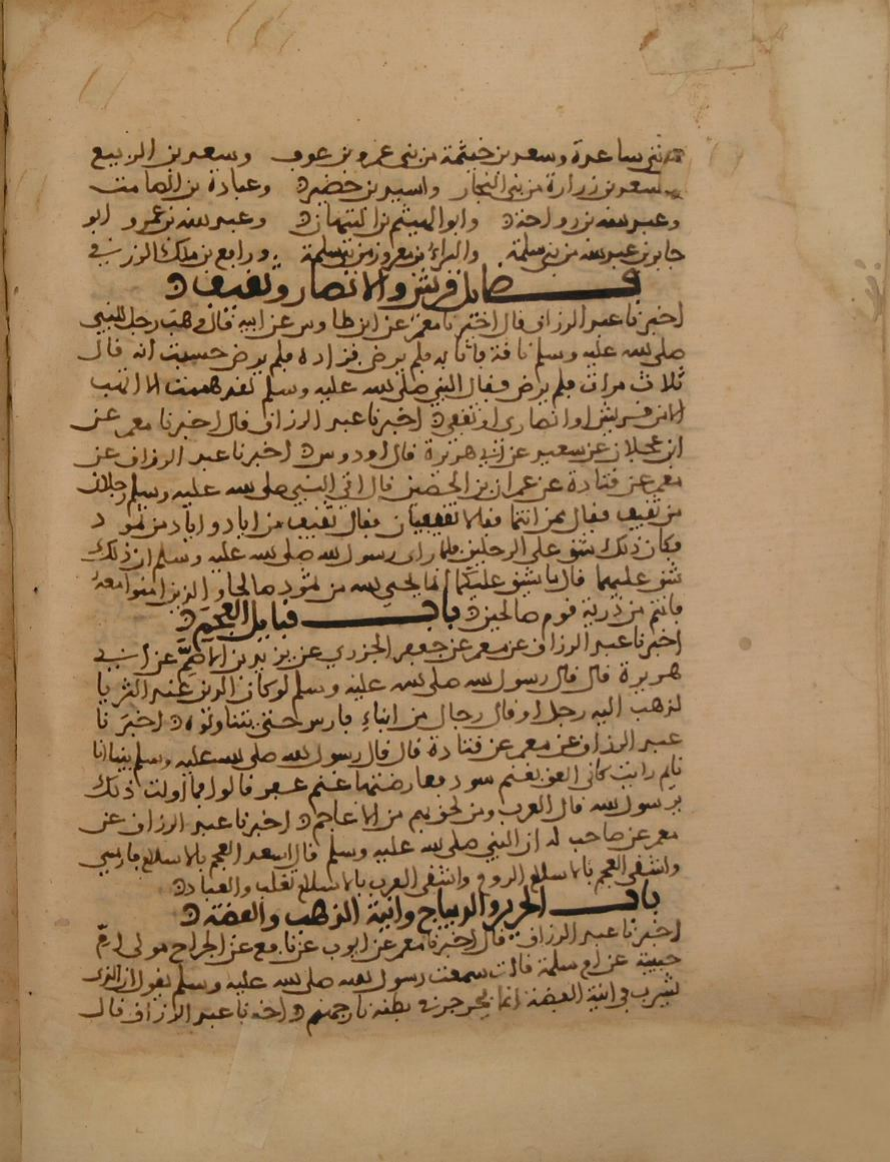 بني ساعدة وسعد بن خيثمة من بني عمرو بن عوف وسعد بن الربيع
واسعد بن زرارة من بني النجار واسيد بن حضير وعبادة بن الصامت
وعبد الله بن رواحة وابو الهيثم بن التيهان وعبد الله بن عمرو ابو
جابر بن عبد الله من بني سلمة والبراء بن معرور من بني سلمة ورافع بن ملك الزرقي
فضايل قريش والانصار وثقيف
اخبرنا عبد الرزاق قال اخبرنا معمر عن ابن طاوس عن ابيه قال وهب رجل للنبي
صلى الله عليه وسلم ناقة فاثابه فلم يرض فزاده فلم يرض حسبت انه قال
ثلاث مرات فلم يرض فقال النبي صلى الله عليه وسلم لقد هممت الا اتهب
الا من قريش او انصاري او ثقفي اخبرنا عبد الرزاق قال اخبرنا معمر عن
ابن عجلان عن سعيد عن ابي هريرة قال او دوس اخبرنا عبد الرزاق عن
معمر عن قتادة عن عمران بن الحصين قال اتى النبي صلى الله عليه وسلم رجلان
من ثقيف فقال ممن انتما فقالا ثقفيان فقال ثقيف من اياد واياد من ثمود
فكان ذلك شق على الرجلين فلما راى رسول الله صلى الله عليه وسلم ان ذلك
شق عليهما قال ما شق عليكما انما نجى الله من ثمود صالحا والذين امنوا معه
فانتم من ذرية قوم صالحين باب قبايل العجم
اخبرنا عبد الرزاق عن معمر عن جعفر الجزري عن يزيد بن الاصم عن ابي
هريرة قال قال رسول الله صلى الله عليه وسلم لو كان الدين عند الثريا
لذهب اليه رجل او قال رجال من ابناء فارس حتى يتناولوه اخبرنا
عبد الرزاق عن معمر عن قتادة قال قال رسول الله صلى الله عليه وسلم بينا انا
نايم رايت كاني لغنم سود فعارضتها غنم عفر قالوا فما اولت ذلك
يرسول الله قال العرب ومن لحق بهم من الاعاجم اخبرنا عبد الرزاق عن
معمر عن صاحب له ان النبي صلى الله عليه وسلم قال اسعد العجم بالاسلام فارس
واشقى العجم بالاسلام الروم واشقى العرب بالاسلام تغلب والعباد
باب الحرير والديباج وانية الذهب والفضة
اخبرنا عبد الرزاق قال اخبرنا معمر عن ايوب عن نافع عن الجراح مولى ام
حبيبة عن ام سلمة قالت سمعت رسول الله صلى الله عليه وسلم يقول ان الذي
يشرب في انية الفضة انما يجرجر في بطنه نار جهنم اخبرنا عبد الرزاق قال